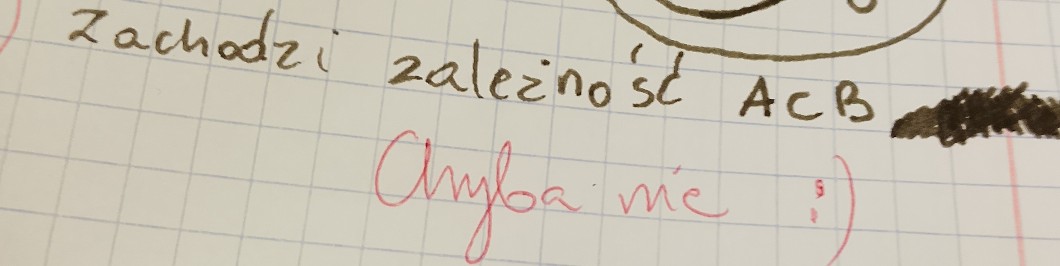 Zachodzi zależność A⊂B
Chyba nie :)